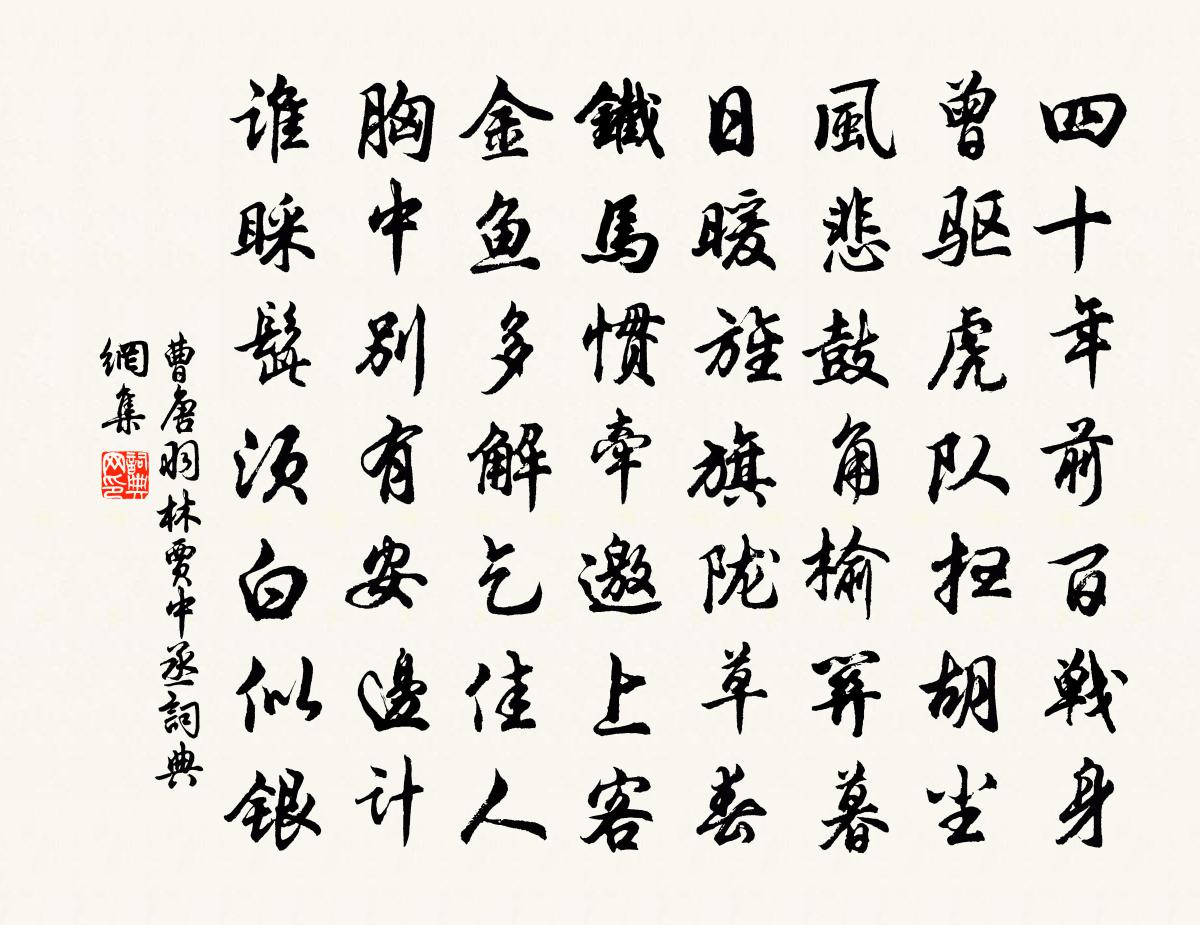 四十年前百戰身
曾驱虎队扫胡尘
風悲鼓角榆関暮
日暖旌旗陇草春
鐵馬惯牵邀上客
金鱼多解乞佳人
胸中别有安邊计
谁睬髭须白似銀
曹唐羽林賈中丞詞典
網集
詞典网印